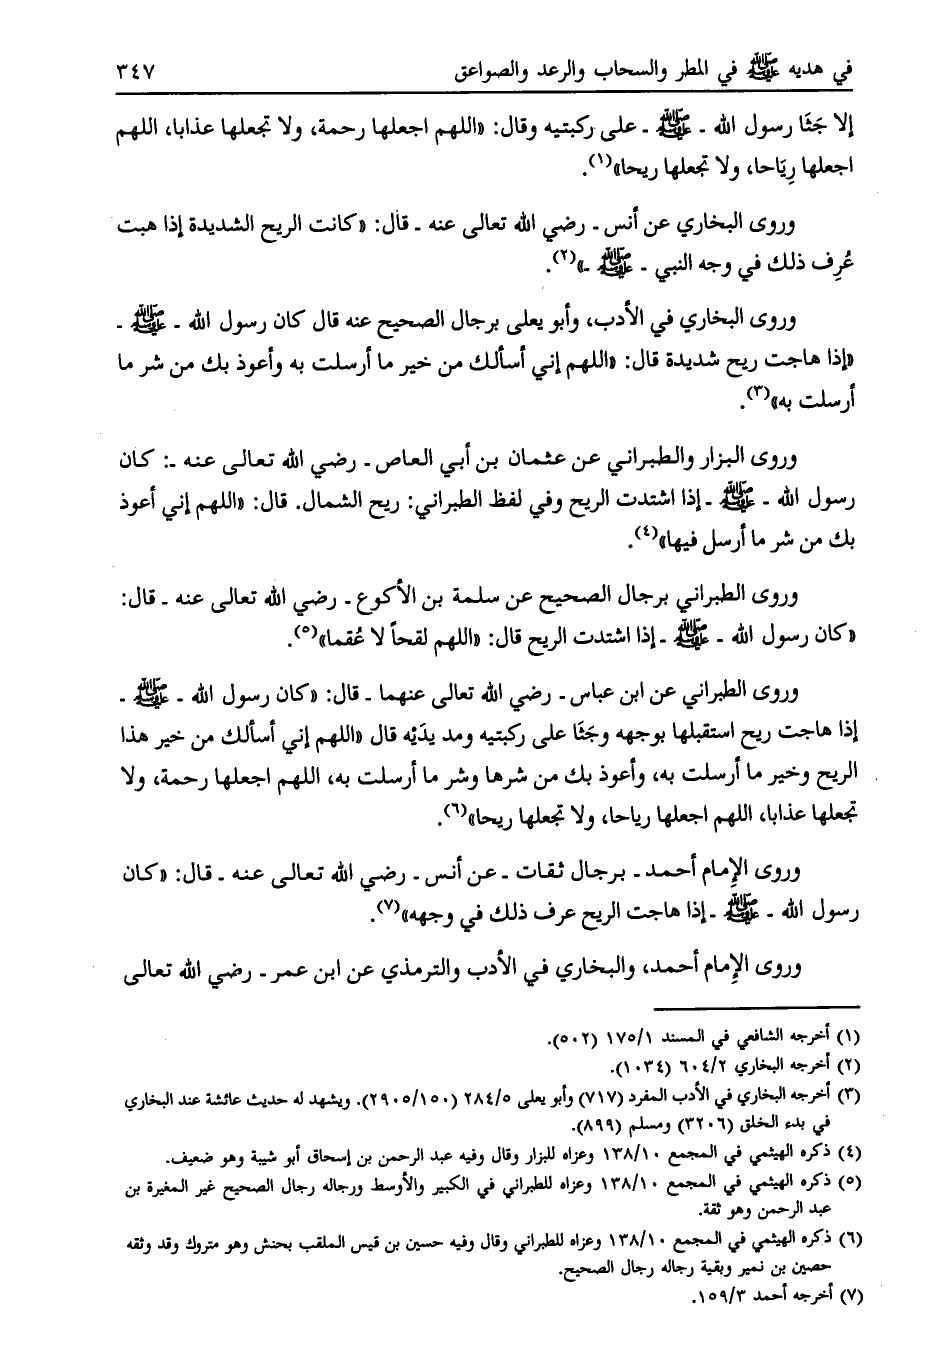 في هديه ﷺ في المطر والسحاب والرعد والصواعق ٣٤٧
إلا جَثَا رسول الله ـ ﷺ ـ على ركبتيه وقال: «اللهم اجعلها رحمة، ولا تجعلها عذابا، اللهم
اجعلها رِيَاحا، ولا تجعلها ريحا»(١).
وروى البخاري عن أنس ـ رضي الله تعالى عنه ـ قال: «كانت الريح الشديدة إذا هبت
عُرِف ذلك في وجه النبي ـ ﷺ ـ»(٢).
وروى البخاري في الأدب، وأبو يعلى برجال الصحيح عنه قال كان رسول الله ـ ﷺ ـ
«إذا هاجت ريح شديدة قال: «اللهم إني أسألك من خير ما أرسلت به وأعوذ بك من شر ما
أرسلت به»(٣).
وروى البزار والطبراني عن عثمان بن أبي العاص ـ رضي الله تعالى عنه ـ: كان
رسول الله ـ ﷺ ـ إذا اشتدت الريح وفي لفظ الطبراني: ريح الشمال. قال: «اللهم إني أعوذ
بك من شر ما أرسل فيها»(٤).
وروى الطبراني برجال الصحيح عن سلمة بن الأكوع ـ رضي الله تعالى عنه ـ قال:
«كان رسول الله ـ ﷺ ـ إذا اشتدت الريح قال: «اللهم لقحاً لا عُقما»(٥).
وروى الطبراني عن ابن عباس ـ رضي الله تعالى عنهما ـ قال: «كان رسول الله ـ ﷺ ـ
إذا هاجت ريح استقبلها بوجهه وجَثَا على ركبتيه ومد يدَيْه قال «اللهم إني أسألك من خير هذا
الريح وخير ما أرسلت به، وأعوذ بك من شرها وشر ما أرسلت به، اللهم اجعلها رحمة، ولا
تجعلها عذابا، اللهم اجعلها رياحا، ولا تجعلها ريحا»(٦).
وروى الإمام أحمد ـ برجال ثقات ـ عن أنس ـ رضي الله تعالى عنه ـ قال: «كان
رسول الله ـ ﷺ ـ إذا هاجت الريح عرف ذلك في وجهه»(٧).
وروى الإمام أحمد، والبخاري في الأدب والترمذي عن ابن عمر ـ رضي الله تعالى
(١) أخرجه الشافعي في المسند ١٧٥/١ (٥٠٢).
(٢) أخرجه البخاري ٦٠٤/٢ (١٠٣٤).
(٣) أخرجه البخاري في الأدب المفرد (٧١٧) وأبو يعلى ٢٨٤/٥ (٢٩٠٥/١٥٠). ويشهد له حديث عائشة عند البخاري
في بدء الخلق (٣٢٠٦) ومسلم (٨٩٩).
(٤) ذكره الهيثمي في المجمع ١٣٨/١٠ وعزاه للبزار وقال وفيه عبد الرحمن بن إسحاق أبو شيبة وهو ضعيف.
(٥) ذكره الهيثمي في المجمع ١٣٨/١٠ وعزاه للطبراني في الكبير والأوسط ورجاله رجال الصحيح غير المغيرة بن
عبد الرحمن وهو ثقة.
(٦) ذكره الهيثمي في المجمع ١٣٨/١٠ وعزاه للطبراني وقال وفيه حسين بن قيس الملقب بحنش وهو متروك وقد وثقه
حصين بن نمير وبقية رجاله رجال الصحيح.
(٧) أخرجه أحمد ١٥٩/٣.